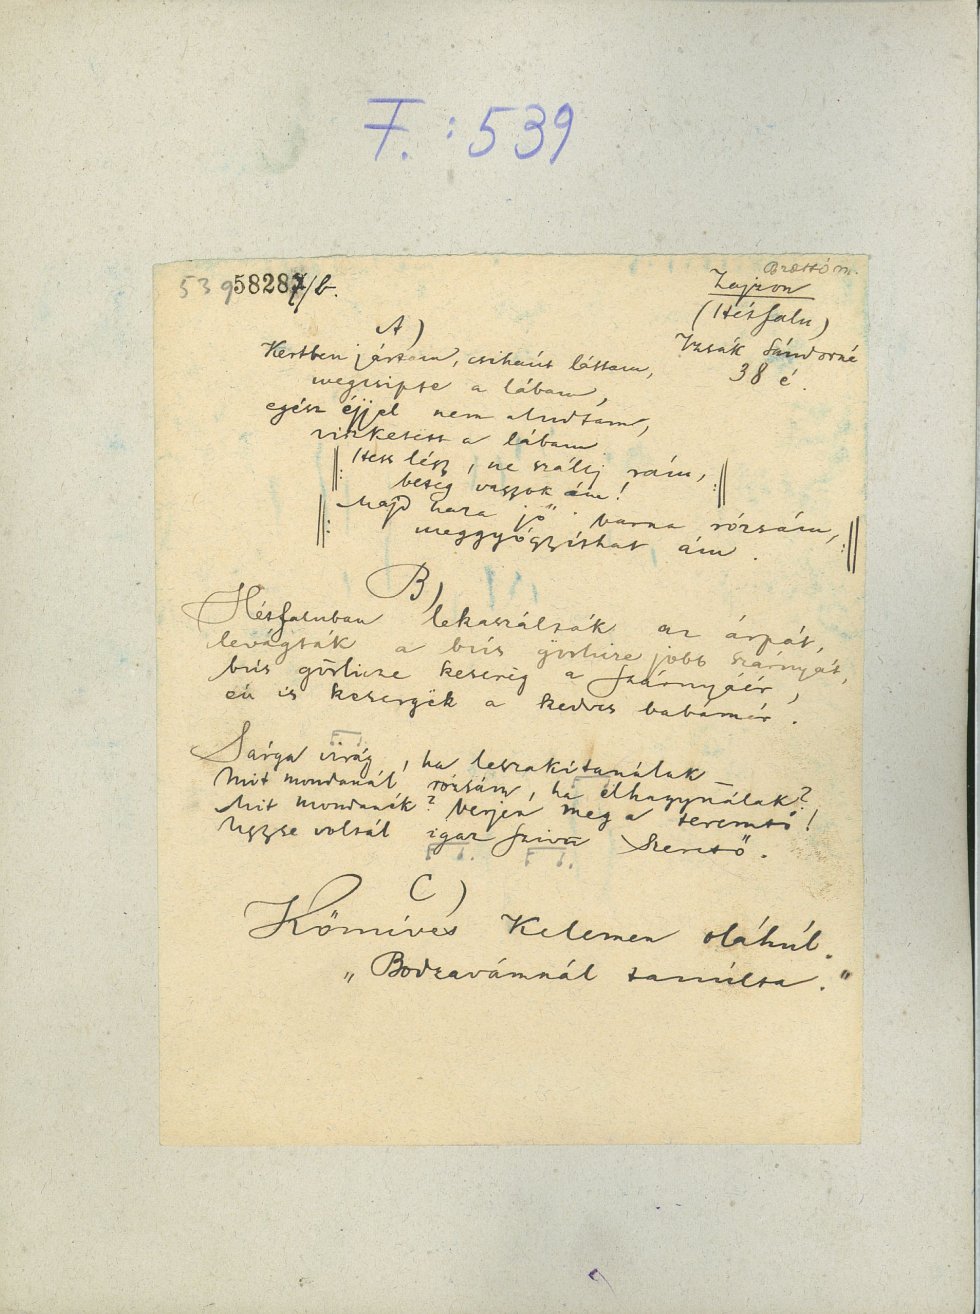 F. : 539
539 58287/b.
Brassó m.
Zajzon
(Hétfalu)
Izsák Sándorné
38 é.
A)
Kertben jártam, csihánt láttam,
megcsipte a lábam,
egész éjjel nem aludtam,
viszketett a lábam
||: Hess légy, ne szállj rám,
beteg vagyok ám! :||
||: Majd haza jő barna rózsám,
meggyógyíthat ám. :||
B)
Hétfaluban lekaszálták az árpát,
levágták a bús görlicze jobb szárnyát,
bús görlicze kesereg a szárnyáér,
én is kesergek a kedves babámér.
Sárga virág, ha leszakítanálak –
Mit mondanál rózsám, ha elhagynálak?
Mit mondanék? Verjen meg a teremtő!
Ugyse voltál igaz szivü szerető.
C)
Kőmíves Kelemen oláhúl.
„Bodzavámnál tanúlta."